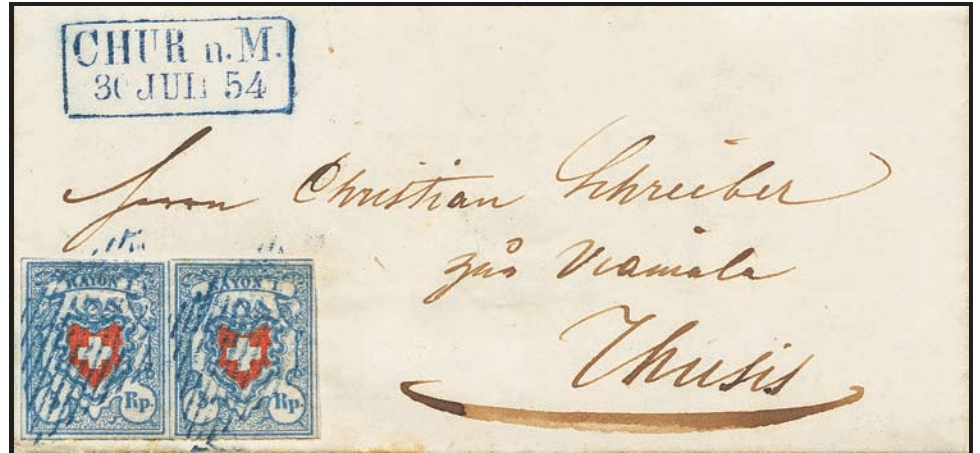 CHUR n.M.
30 JULI 54
Herrn Christian Schreiber
zur Viamala
Thusis
RAYON I.
5 Rp.
RAYON I.
5 Rp.